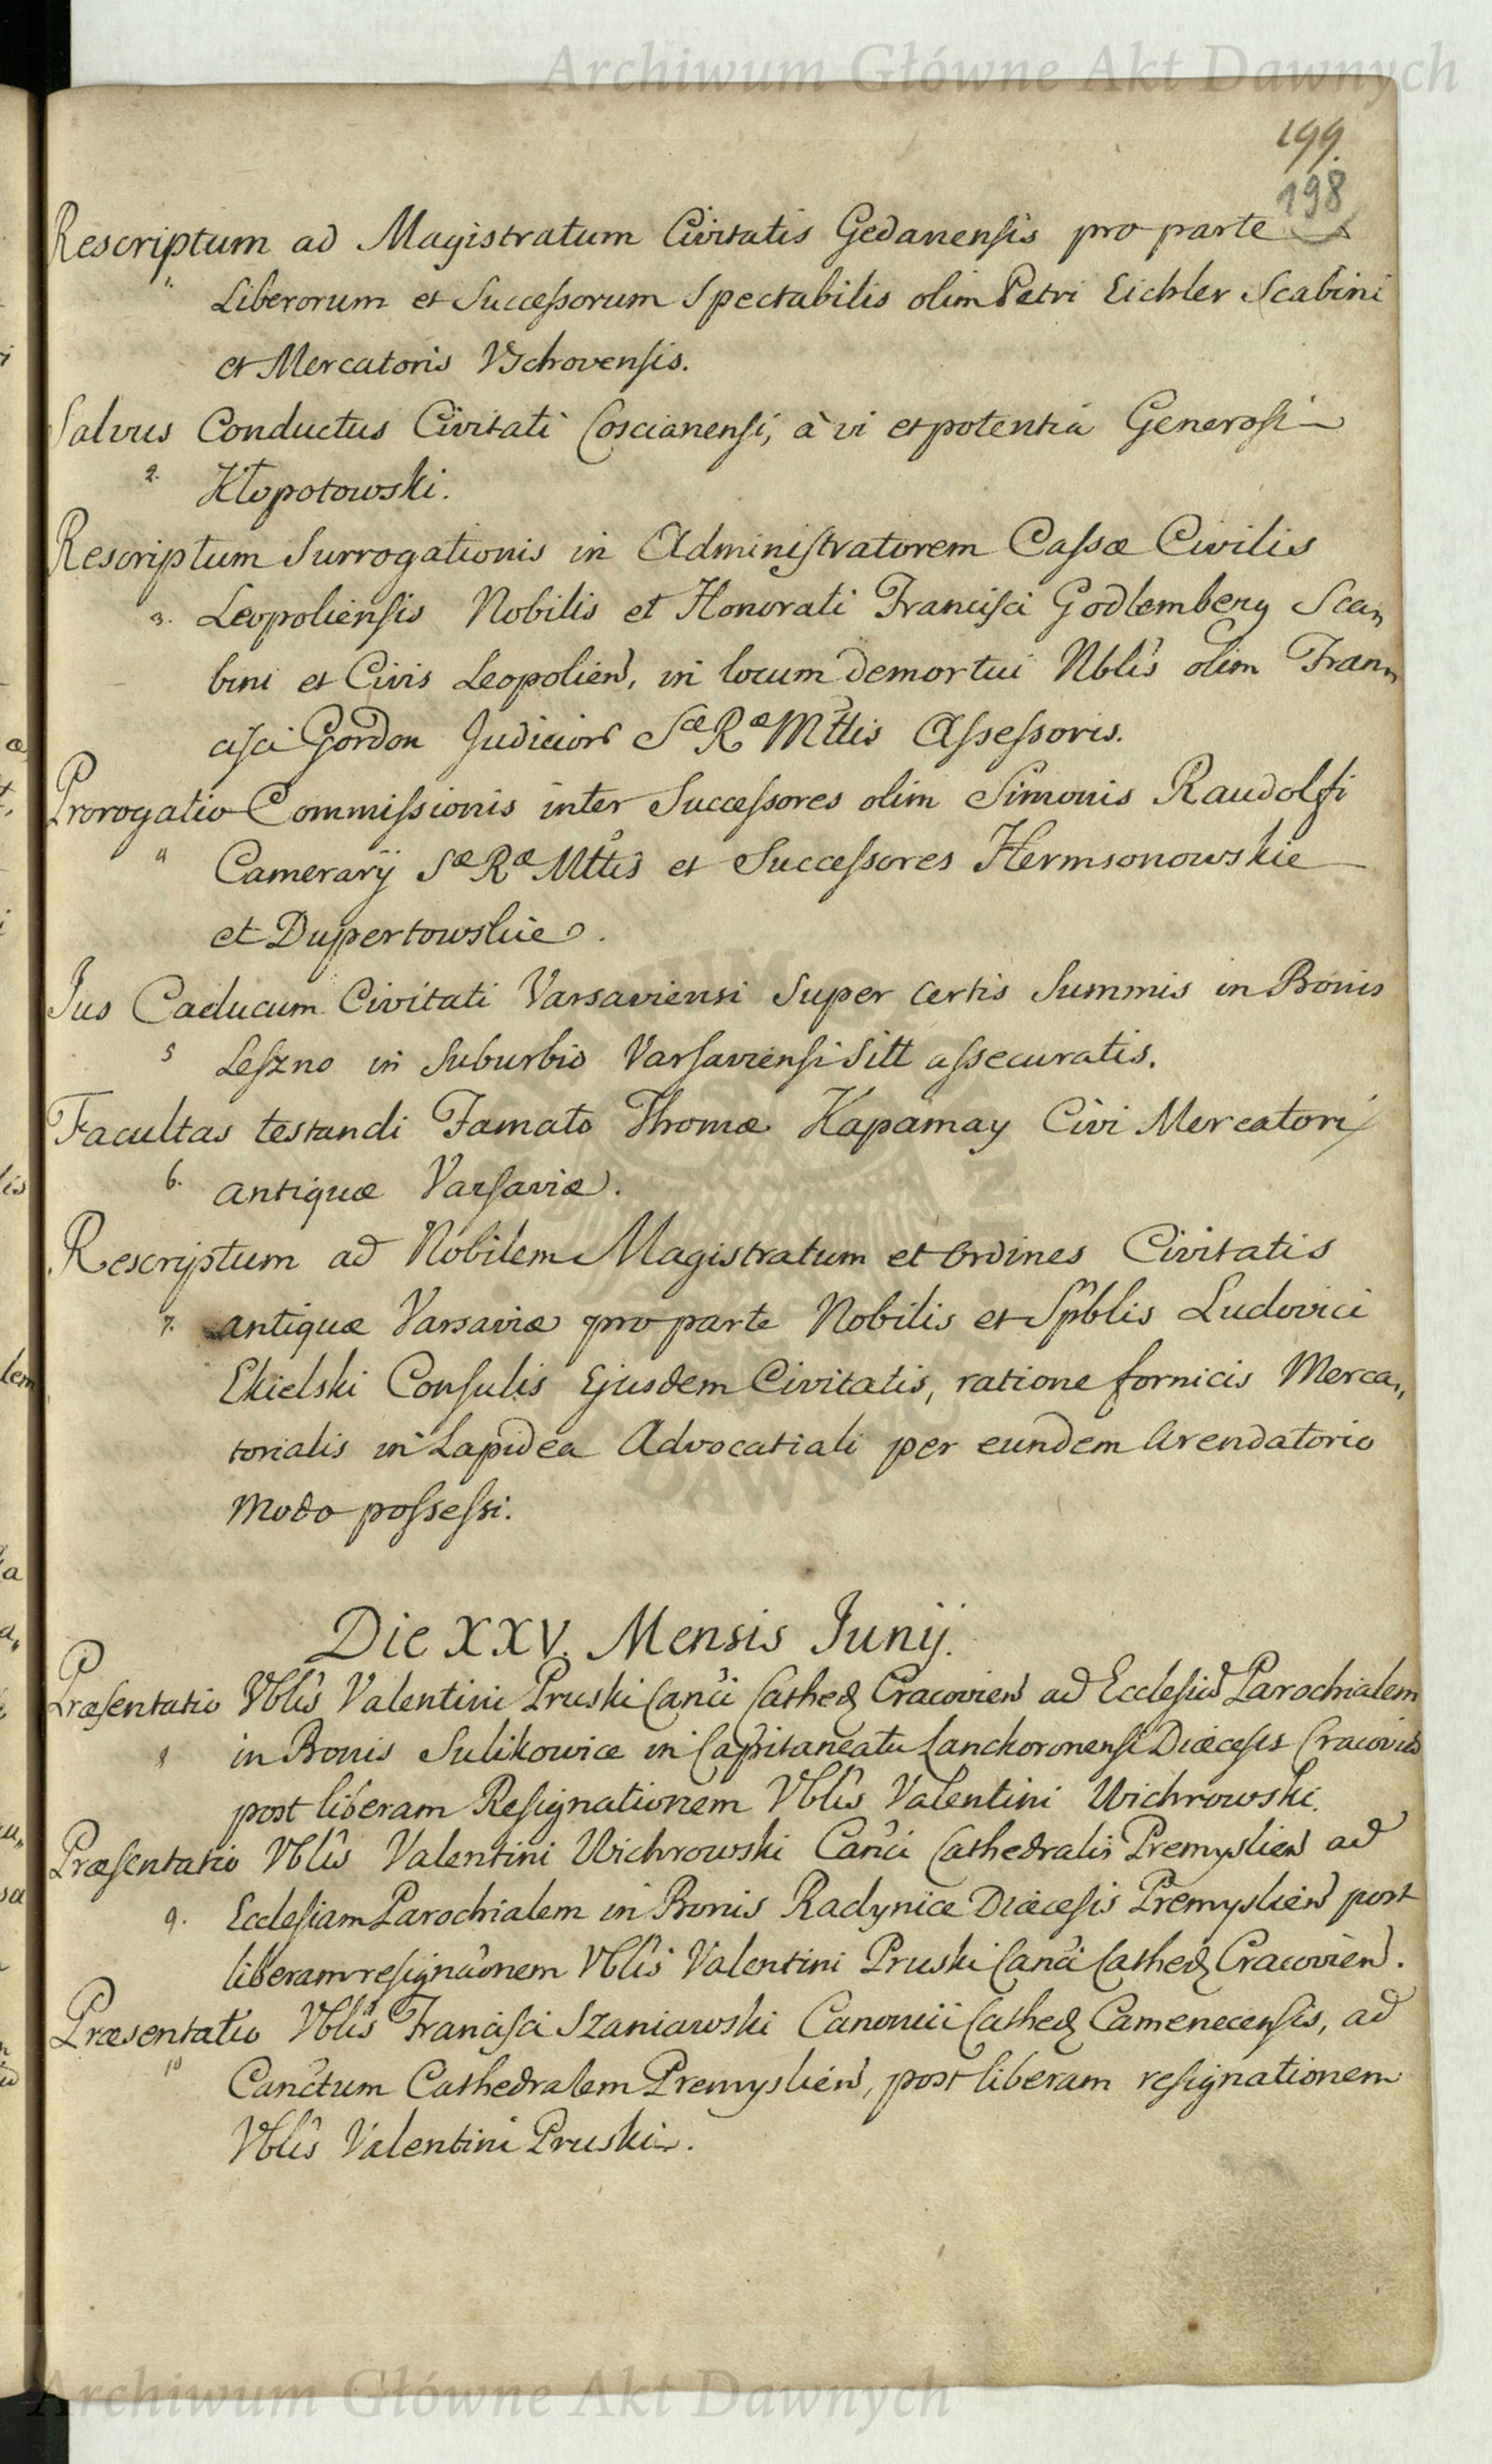 Archiwum Główne Akt Dawnych
199.
198
Rescriptum ad Magistratum Civitatis Gedanensis pro parte
1. Liberorum et Successorum Spectabilis olim Petri Eichler Scabini
et Mercatoris Vschovensis.
Salvus Conductus Civitati Coscianensi, à vi et potentia Generosi
2. Kłopotowski.
Rescriptum Surrogationis in Administratorem Cassæ Civilis
3. Leopoliensis Nobilis et Honorati Francisci Godlemberg Sca„
bini et Civis Leopolien, in locum demortui Nblis olim Fran„
cisci Gordon Judicior Sæ Ræ Mttis Assessoris.
Prorogatio Commissionis inter Successores olim Simonis Raudolfi
4 Camerarij Sæ Ræ Mttis et Successores Hermsonowskie
et Dupertowskie.
Jus Caducum Civitati Varsaviensi Super certis Summis in Bonis
5 Leszno in Suburbio Varsaviensi Sitt assecuratis.
Facultas testandi Famato Thomæ Kapamay Civi Mercatori
6. antiquæ Varsaviæ.
Rescriptum ad Nobilem Magistratum et Ordines Civitatis
7. antiquæ Varsaviæ pro parte Nobilis et Spblis Ludovici
Ekielski Consulis Ejusdem Civitatis, ratione fornicis Merca„
torialis in Lapidea Advocatiali per eundem Arendatorio
Modo possessi.
Die XXV. Mensis Junij.
Præsentatio Vblis Valentini Pruski Canci Cathed Cracovien ad Ecclesia Parochialem
8 in Bonis Sulikowice in Capitaneatu Lanckoronensi Diæcesis Cracovien
post liberam Resignationem Vblis Valentini Wichrowski.
Præsentatio Vblis Valentini Wichrowski Canci Cathedralis Premyslien ad
9. Ecclesiam Parochialem in Bonis Radynice Diæcesis Premyslien post
liberam resignaonem Vblis Valentini Pruski Canci Cathed Cracovien.
Præsentatio Vblis Francisci Szaniawski Canonici Cathed Camenecensis, ad
10 Canctum Cathedralem Premyslien, post liberam resignationem
Vblis Valentini Pruski.
Archiwum Główne Akt Dawnych